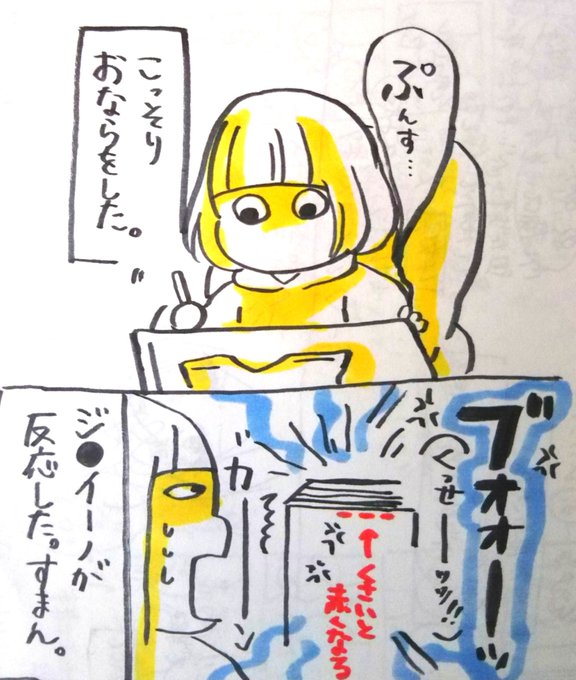 ぷんす…
こっそり
おならをした。
ブオオーッ
(くっせーーッッ!!)
ガーーン
↑くさいと
赤くなる
ジ●イーノが
反応した。すまん。